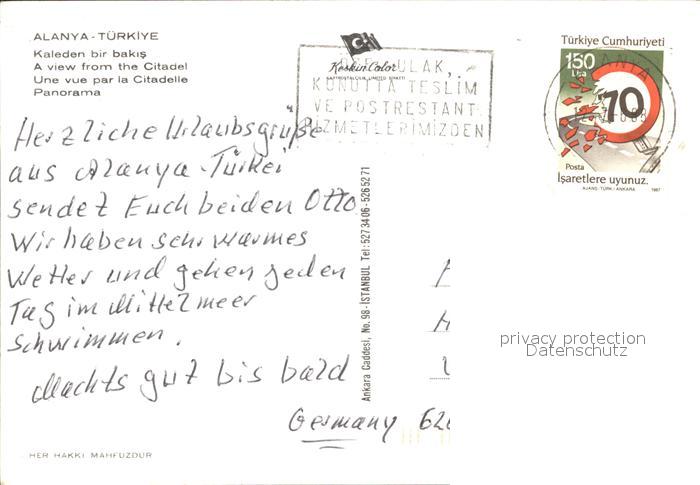 ALANYA - TÜRKİYE
Kaleden bir bakış
A view from the Citadel
Une vue par la Citadelle
Panorama
Keskin Color
KARTPOSTALCILIK LIMITED ŞİRKETİ
ULAK,
KONUTTA TESLİM
VE POSTRESTANT
HİZMETLERİMİZDEN
Türkiye Cumhuriyeti
150
Lira
70
Posta
İşaretlere uyunuz.
AJANS-TÜRK / ANKARA 1987
Herzliche Urlaubsgrüße
aus Alanya-Türkei
sendet Euch beiden Otto
Wir haben sehr warmes
Wetter und gehen jeden
Tag im Mittelmeer
schwimmen.
Machts gut bis bald
Germany 62
Ankara Caddesi, No. 98-İSTANBUL Tel: 527 34 06-526 52 71
privacy protection
Datenschutz
HER HAKKI MAHFUZDUR